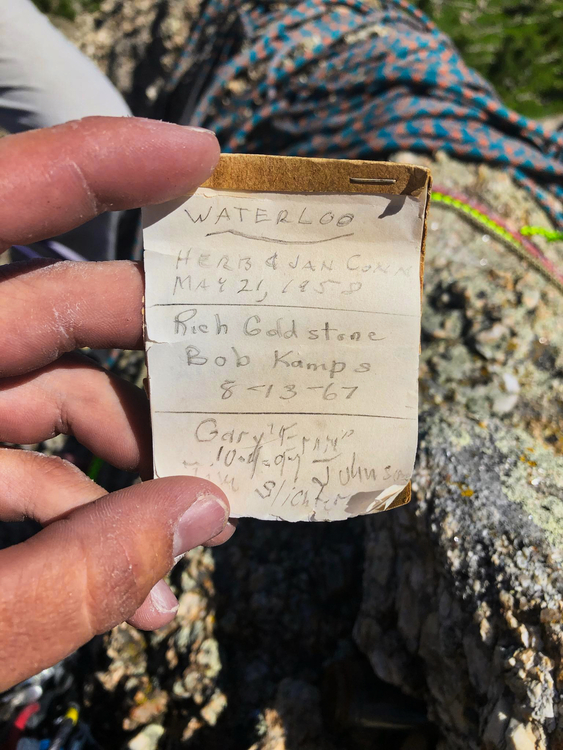 WATERLOO
HERB & JAN CONN
MAY 21, 1958
Rich Goldstone
Bob Kamps
8-13-67
Gary
Johnson